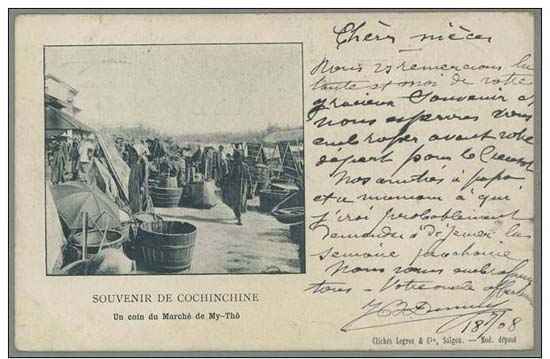 Chères nièces
Nous vs remercions la
tante et moi de votre
gracieux Souvenir et
nous espérons vous
embrasser avant votre
départ pour le Creusot
Nos amitiés à papa
et a maman à qui
j'irai probablement
demander à déjeuner la
semaine prochaine
Nous vous embrassons
tous - Votre oncle affectionné
18/08
SOUVENIR DE COCHINCHINE
Un coin du Marché de My-Thô
Clichés Legros & Cie, Saïgon. - Rod. déposé